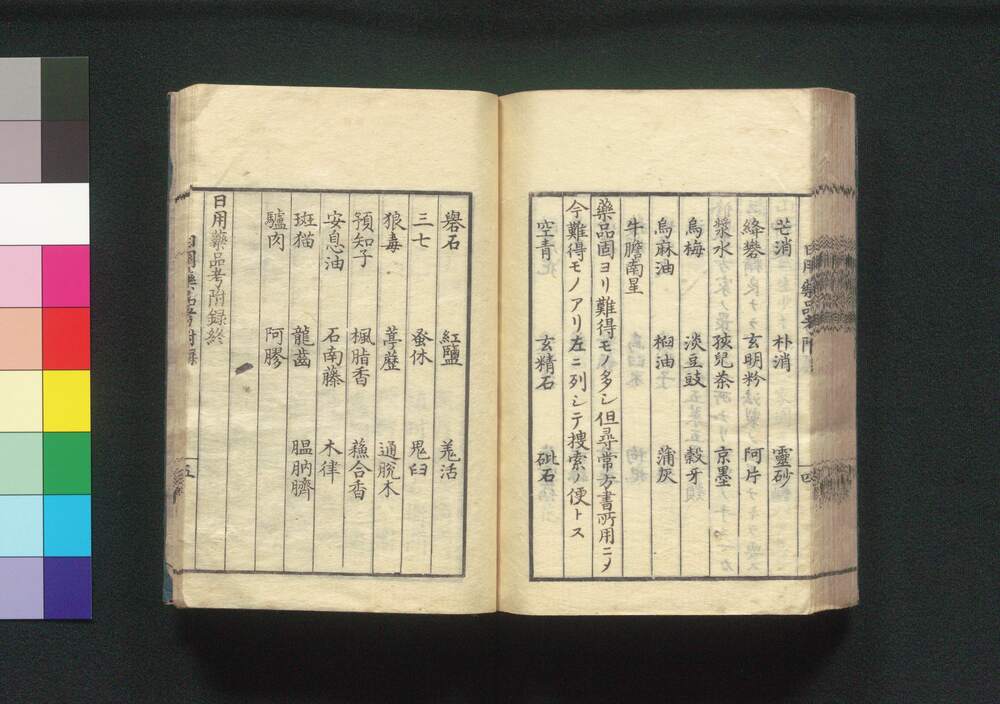 芒消 朴消 靈砂
絳礬 玄明粉 阿片
漿水 孩兒茶 京墨
烏梅 淡豆豉 穀牙
烏麻油 桕油 蒲灰
牛膽南星
藥品固ヨリ難得モノ多シ但尋常方書所用ニメ
今難得モノアリ左ニ列シテ捜索ノ便トス
空青 玄精石 砒石
礜石 紅鹽 羗活
三七 蚤休 鬼臼
狼毒 葶藶 通脫木
預知子 楓脂香 蘓合香
安息油 石南藤 木律
斑猫 龍齒 膃肭臍
驢肉 阿膠
日用藥品考附録終
五